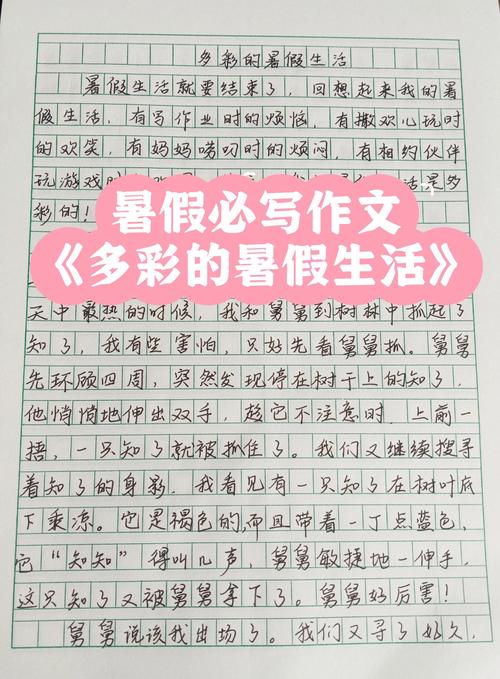 多彩的暑假生活
暑假生活就要结束了，回想起来我的暑
假生活，有写作业时的烦恼，有撒欢儿玩时
的欢笑，有妈妈唠叨时的烦闷，有相约伙伴
玩游戏时
活是多
彩的！
暑假必写作文
《多彩的暑假生活》
天中最热的时候，我和舅舅到树林中抓起了
知了，我有些害怕，只好先看舅舅抓。舅舅
先环顾四周，突然发现停在树干上的知了，
他悄悄地伸出双手，趁它不注意时，上前一
捂，一只知了就被抓住了。我们又继续搜寻
着知了的身影，我看见有一只知了在树叶底
下乘凉。它是褐色的，而且带着一丁点蓝色，
它“知知”得叫几声，舅舅敏捷地一伸手，
这只知了又被舅舅拿下了。舅舅好厉害！
舅舅说该我出场了。我们又寻了好久，